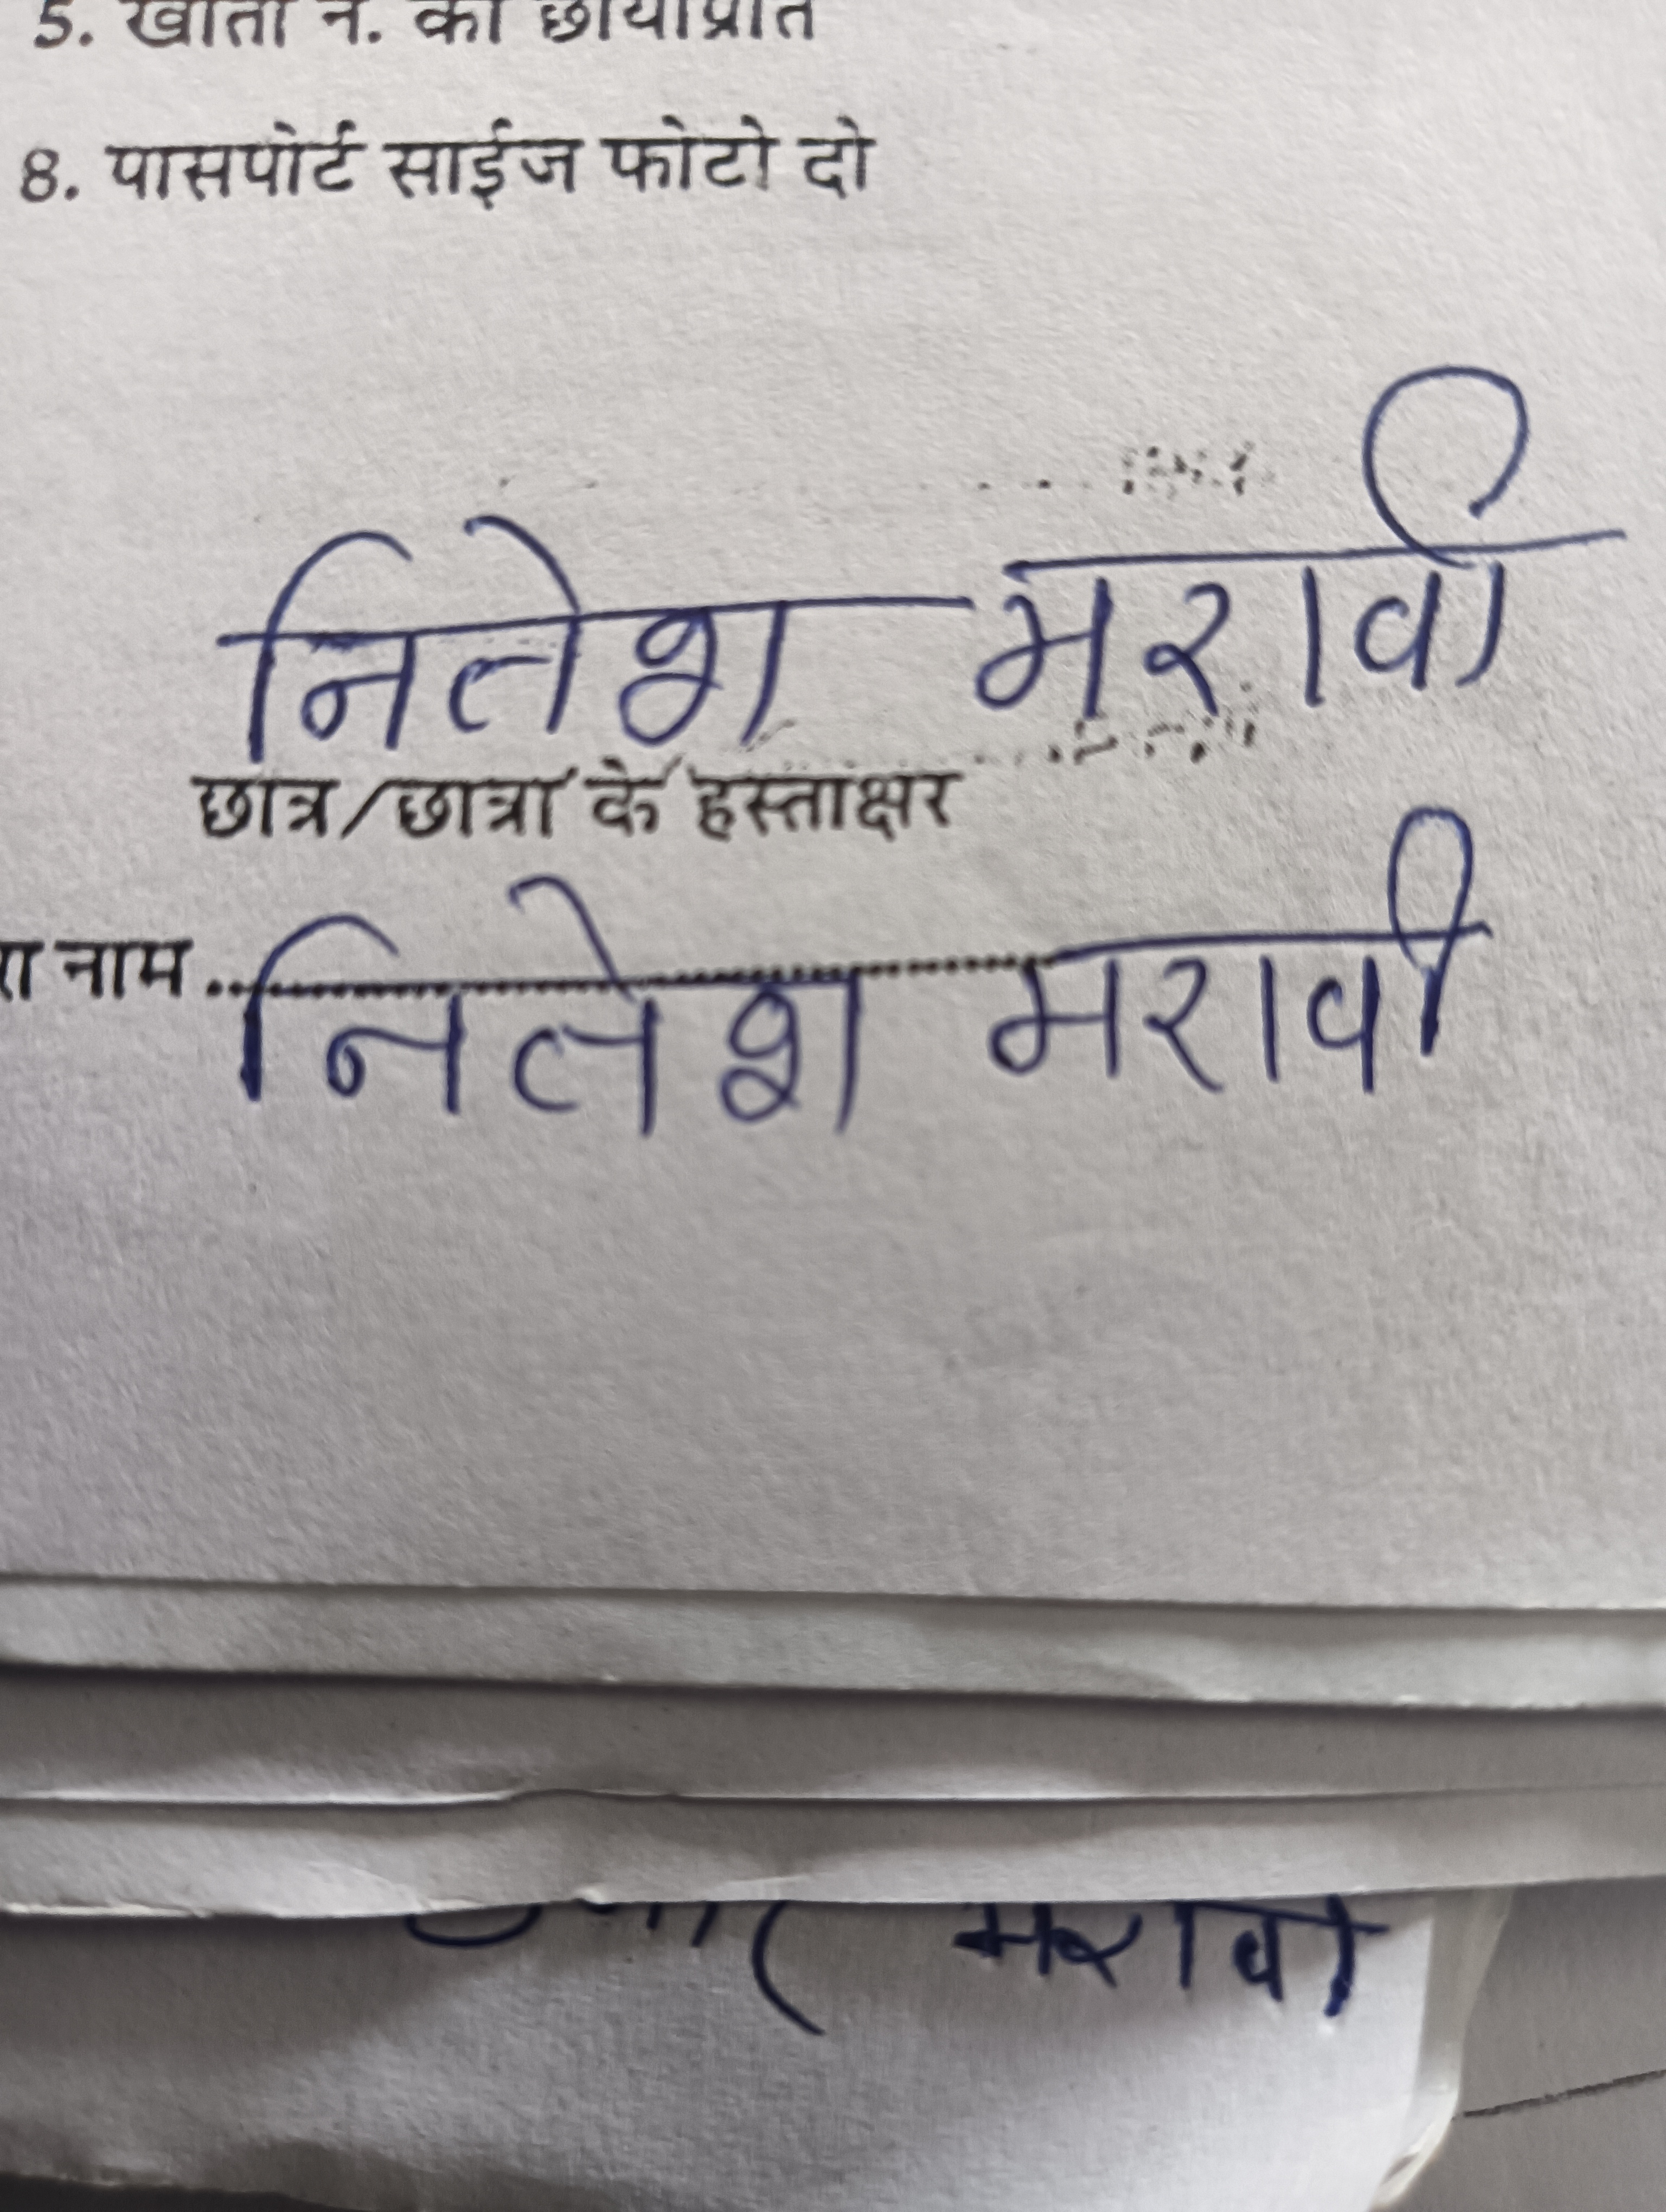 5. खाता न. की छायाप्रति
8. पासपोर्ट साईज फोटो दो
नितेश मरावी
छात्र/छात्रा के हस्ताक्षर
नाम.......... नितेश मरावी
मरावी